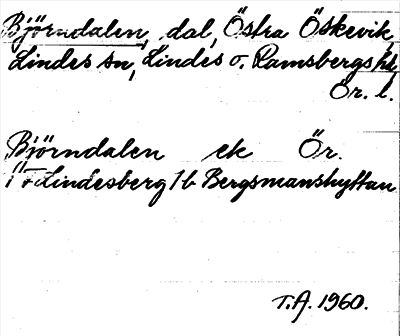 Björndalen, dal, Östra Öskevik,
Lindes sn, Lindes o. Ramsbergs hd,
Ör. l.
Björndalen ek Ör.
11 F Lindesberg 1b Bergsmanshyttan
T.A. 1960.